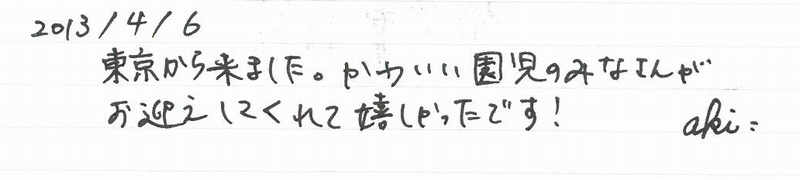 2013/4/6
東京から来ました。かわいい園児のみなさんが
お迎えしてくれて嬉しかったです!
aki: